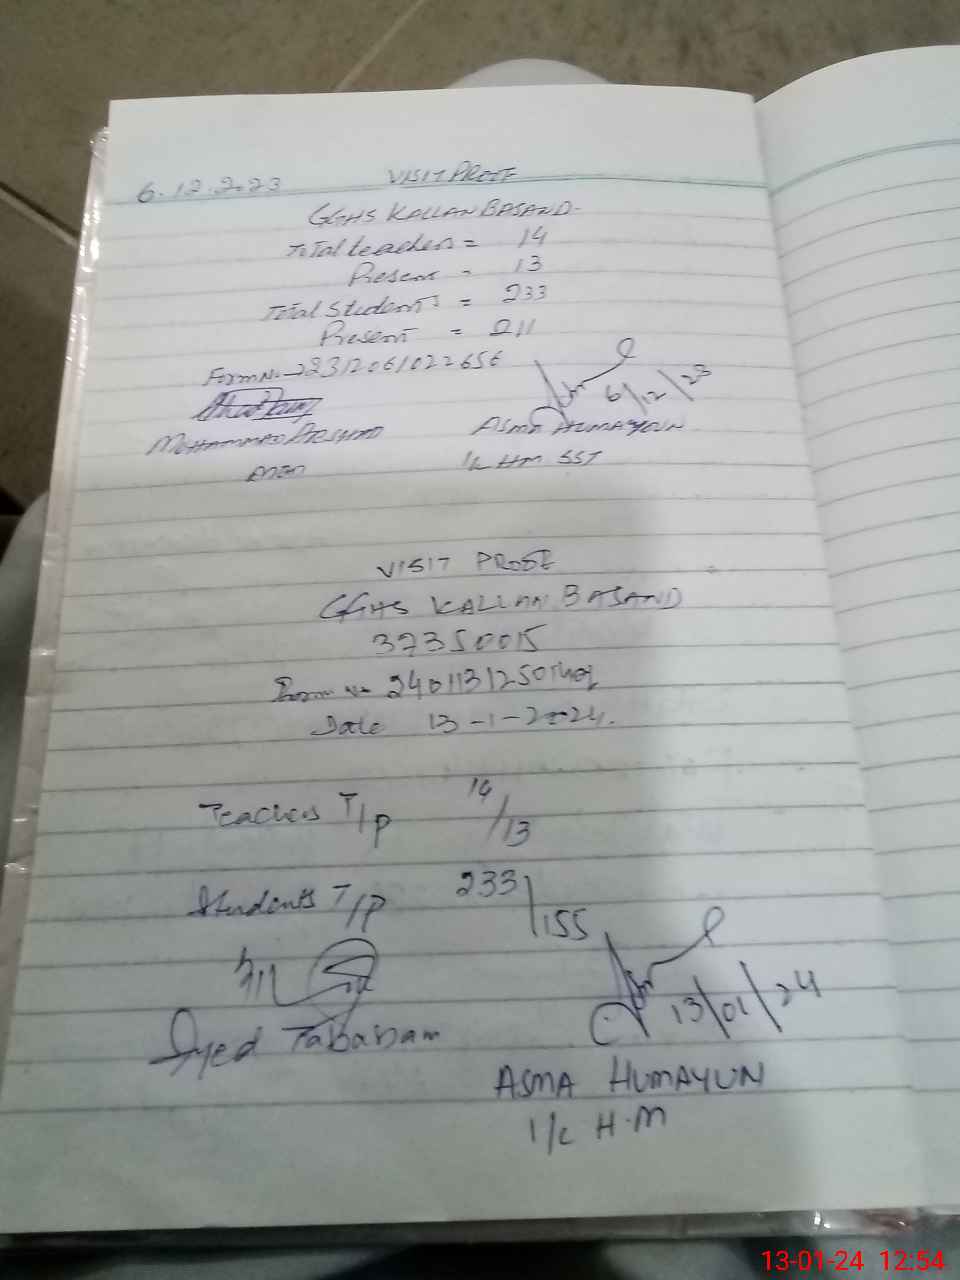 6.12.2023 VISIT PROOF
GGHS KALLAN BASAND.
Total teachers = 14
Present = 13
Total Students = 233
Present = 211
Form No. 2312061022656
MOHAMMAD ARSHAD
6/12/23
ASMA HUMAYUN
I/c HM SST
VISIT PROOF
GGHS KALLAN BASAND
37350015
Form No
Date 13-1-2024.
Teachers T/P 14/13
Students T/P 233/155
Syed Tabasam
13/01/24
ASMA HUMAYUN
I/c H.M
13-01-24 12:54